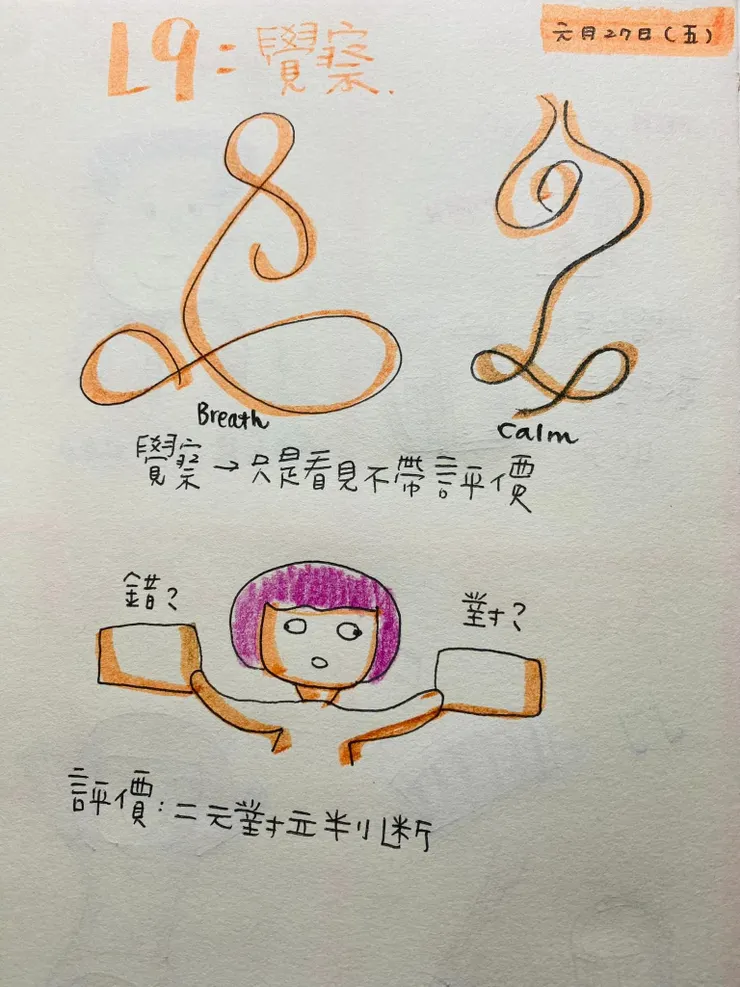 L9:覺察.
元月27日(五)
Breath
calm
覺察→只是看見不帶評價
錯?
對?
評價:二元對立判斷